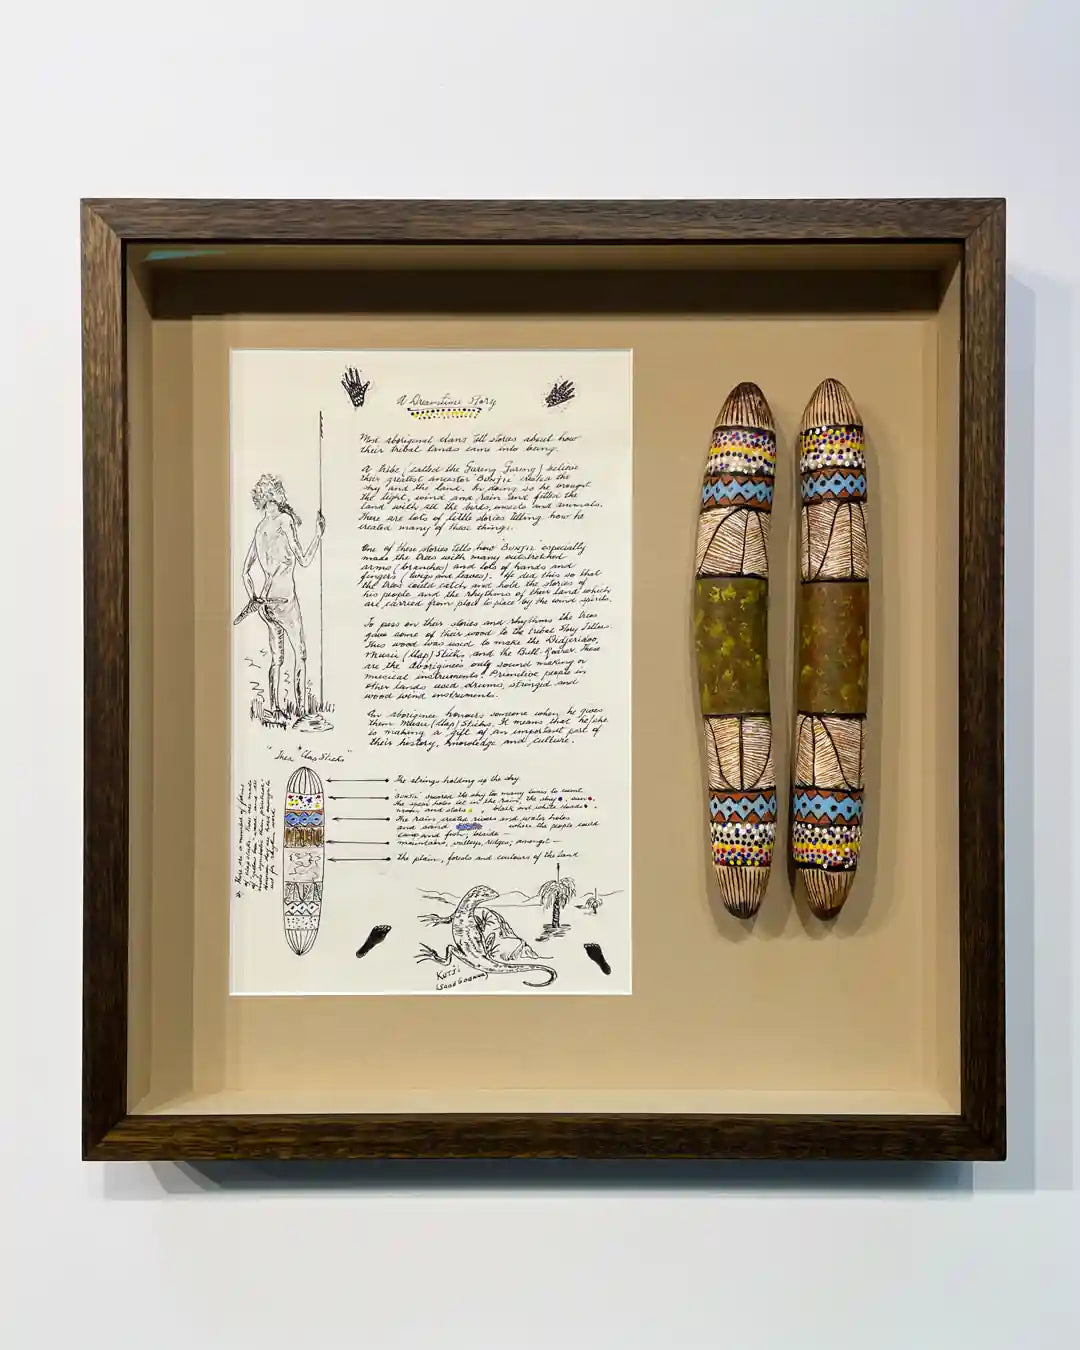 A Dreamtime Story
Most aboriginal clans tell stories about how
their tribal lands came into being.
A tribe (called the Gurung Gurung) believe
their greatest ancestor Bunjie creates the
sky and the land. In doing so he brought
the light, wind and rain and filled the
land with all the birds, insects and animals.
There are lots of little stories telling how he
created many of these things.
One of these stories tells how 'Bunjie' especially
made the trees with many outstretched
arms (branches) and lots of hands and
fingers (twigs and leaves). He did this so that
the trees could catch and hold the stories of
his people and the rhythms of their land which
are carried from place to place by the wind spirits.
To pass on their stories and rhythms the trees
gave some of their wood to the tribal Story Tellers.
This wood was used to make the Didjeridoo,
Music (Clap) Sticks and the Bull-Roarer. These
are the Aborigines only sound making or
musical instruments. Primitive people in
other lands used drums, stringed and
wood wind instruments.
An aboriginee honours someone when he gives
them Music (Clap) Sticks. It means that he/she
is making a gift of an important part of
their history, knowledge and culture.
"Clap Sticks"
The strings holding up the sky.
speared the sky too many times to count.
the spear holes let in the rain, the sky, sun,
moon and stars, black and white clouds.
The rains created rivers and water holes
and sand where the people could
camp and fish, beside —
mountains, valleys, ridges, amongst —
the plain, forests and contours of the land
KUTJI
(Sand Goanna)